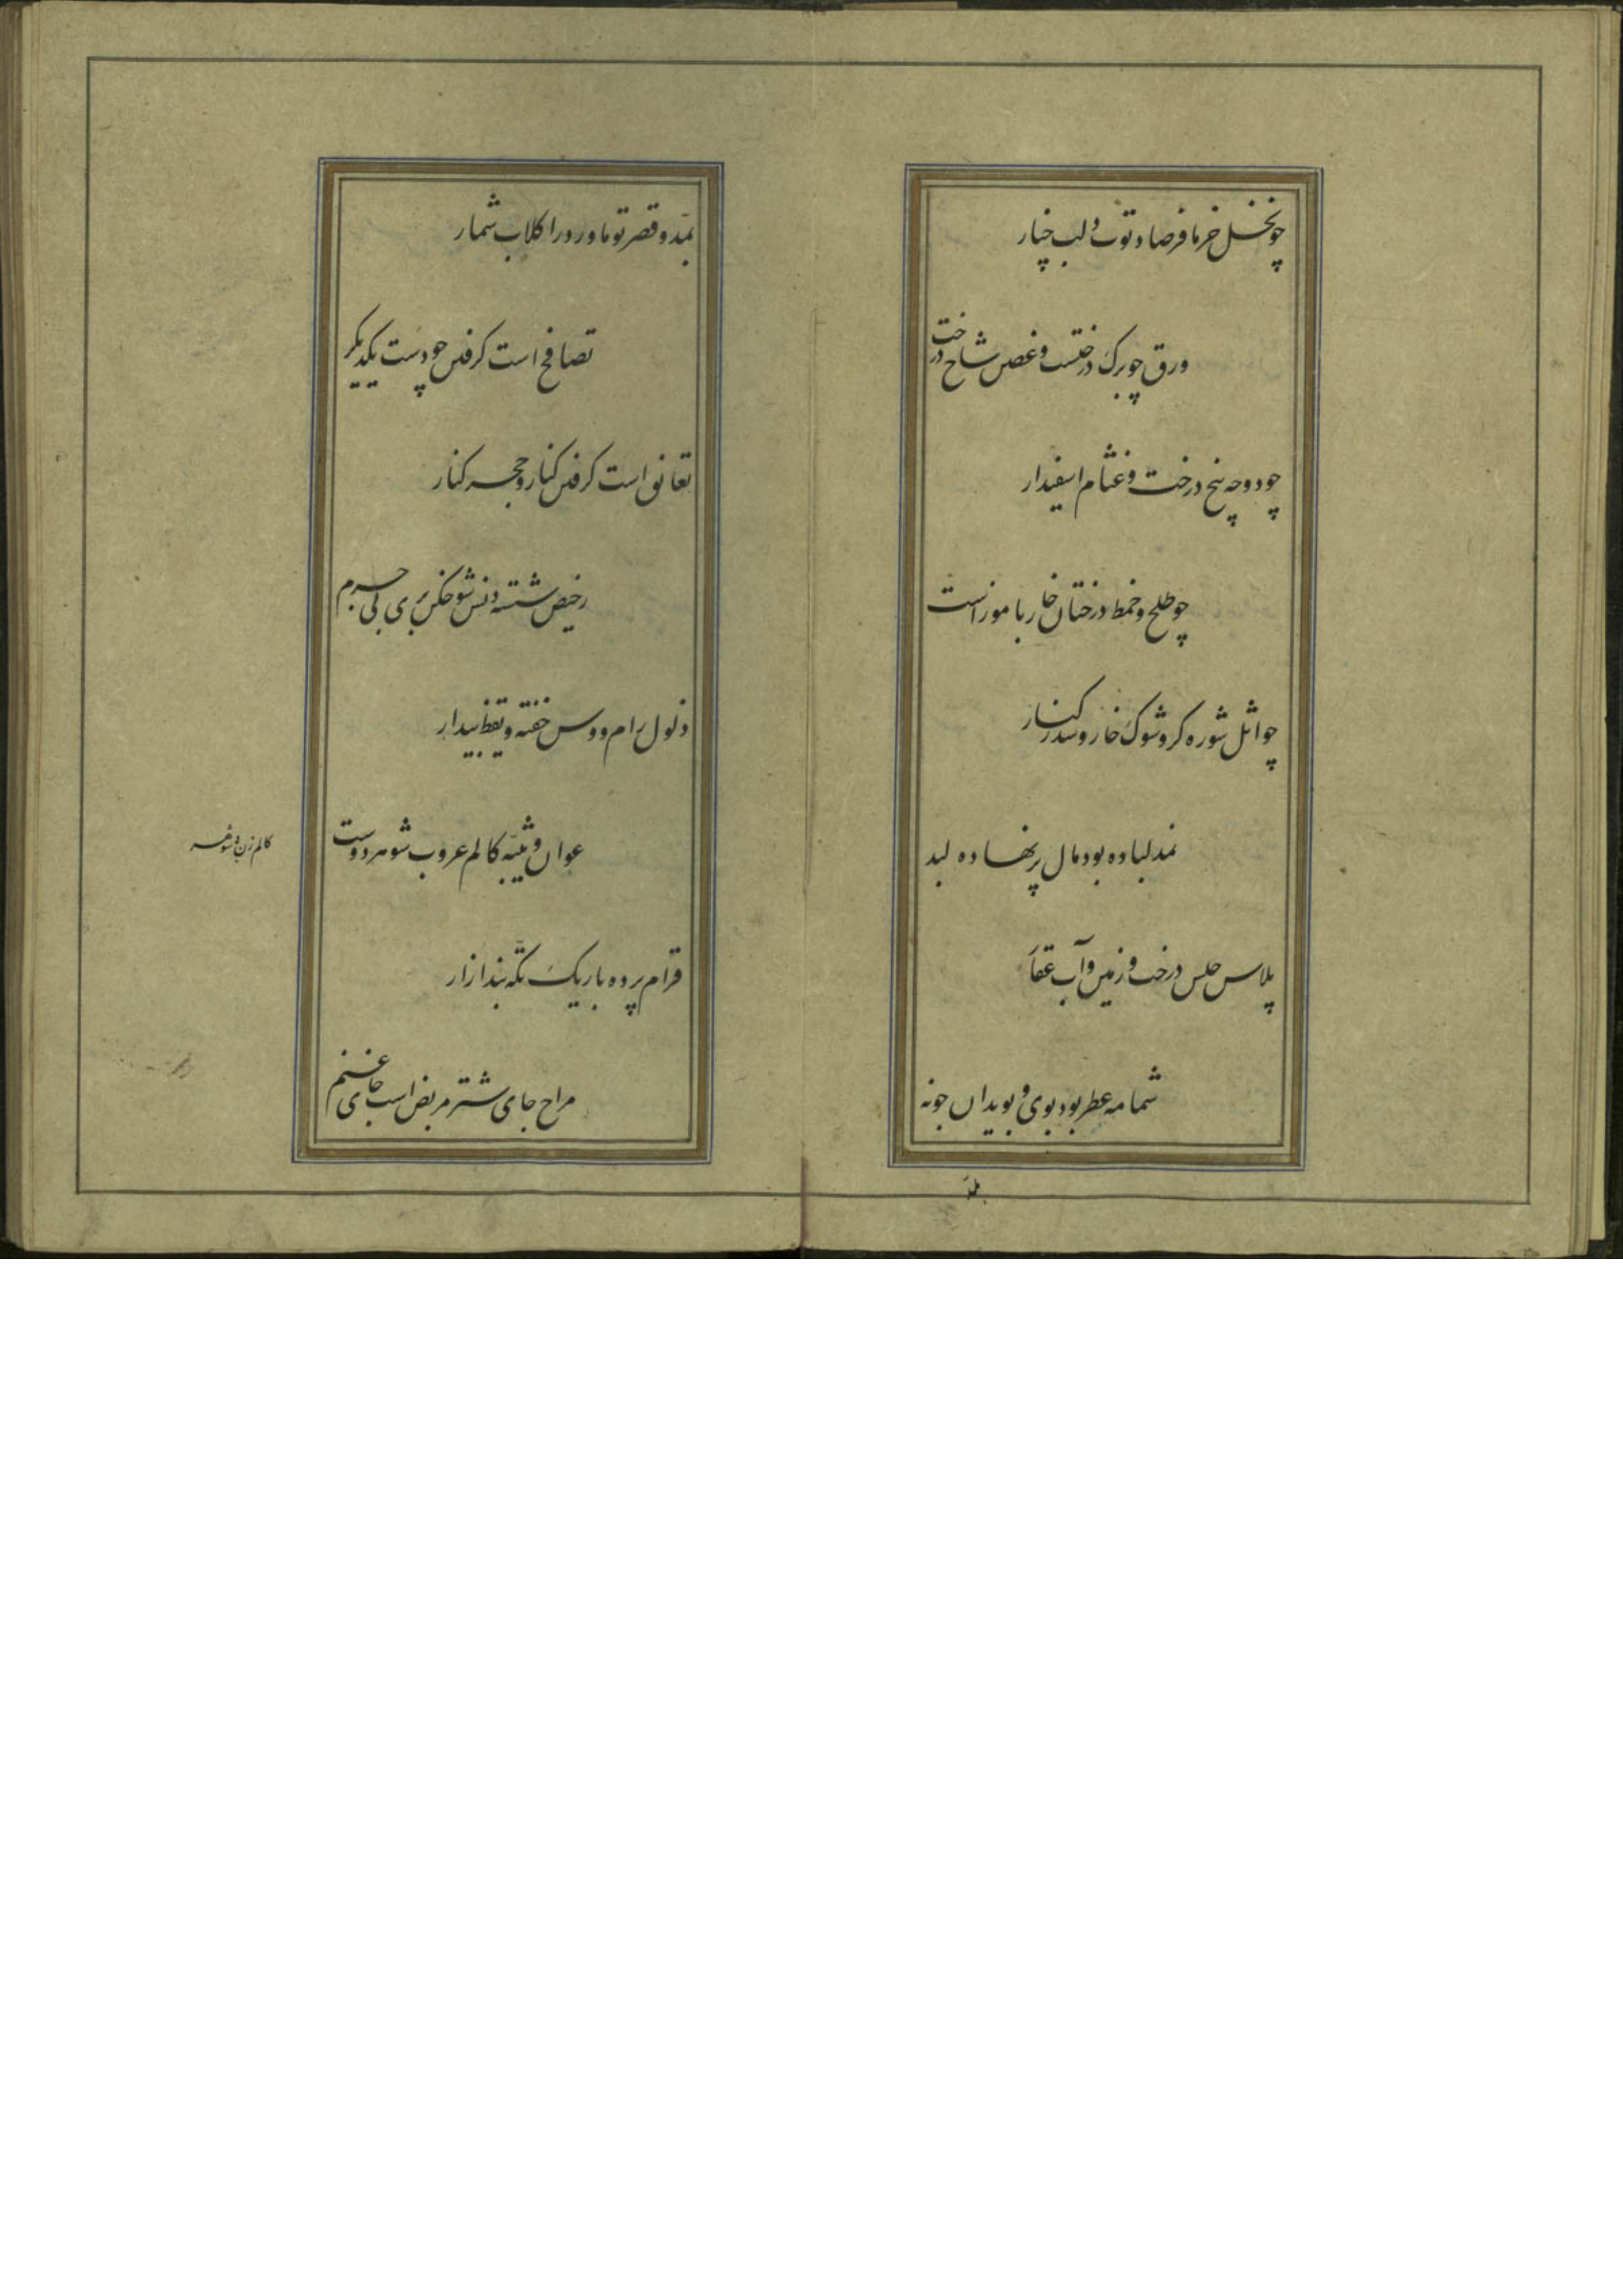 چو نخل خرما فرصاد توت و لب خیار
ورق چو برک درختست و غصن شاخ درخت
چو دوحه بیخ درخت و غشام اسفیدار
چو طلح و خمط درختان خار با موزاست
چو اثل شوره کز و شوک خار و سدر کنار
نمد لباده بود مال پر نهاده لبد
پلاس حلس درخت و زمین و آب عقار
شمامه عطر بود بوی و بویدان جونه
بمد و قصر تو ماورد را کلاب شمار
تصافح است کرفتن چو دست یکدیکر
تعانق است کرفتن کنار و حجر کنار
رخیص شسته دنس شوخکن بری بی جرم
ذلول رام و وسن خفته و یقظ بیدار
عوان و ثیبه کالم عروب شوهردوست
کالم زن بی شوهر
قرام پرده باریک تکه بند ازار
مراح جای شتر مربض است جای غنم